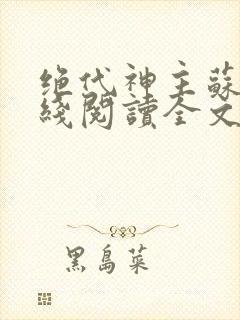 绝代神主蘇
綫閱讀全文
黑島菜